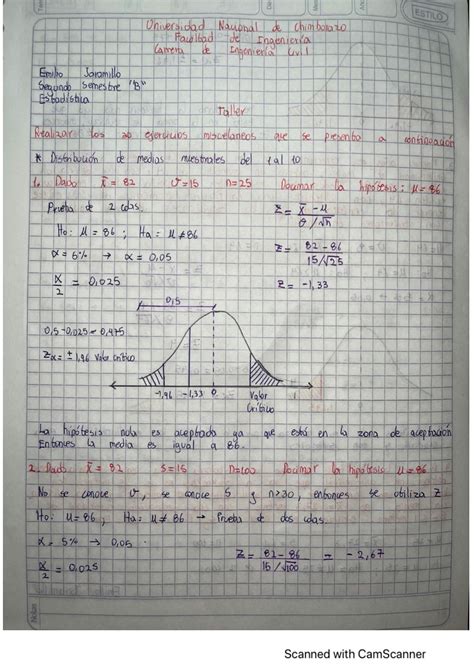 ESTILO
Universidad Nacional de Chimborazo
Facultad de Ingeniería
Carrera de Ingeniería Civil
Emilio Jaramillo
Segundo Semestre "B"
Estadística
Taller
Realizar los 20 ejercicios misceláneos que se presenta a continuación
* Distribución de medias muestrales del 1 al 10
1. Dado x̄ = 82 σ=15 n=25 Docimar la hipótesis: μ=86
Prueba de 2 colas.
Z = x̄ - μ / σ/√n
Ho: μ = 86 ; Ha = μ ≠ 86
Z = 82 - 86 / 15/√25
α = 5% → α = 0,05
α/2 = 0,025
Z = -1,33
0,5
0,5-0,025 = 0,475
Zα = ± 1,96 Valor crítico
-1,96 -1,33 0 Valor
Crítico
La hipótesis nula es aceptada ya que está en la zona de aceptación
Entonces la media es igual a 86.
2. Dado x̄ = 82 S=15 n=100 Docimar la hipótesis μ=86
No se conoce σ, se conoce S y n>30, entonces se utiliza Z
Ho: μ=86 ; Ha: μ≠ 86 → Prueba de dos colas.
α = 5% → 0,05
Z = 82-86 / 15/√100 = -2,67
α/2 = 0,025
Notas
Scanned with CamScanner